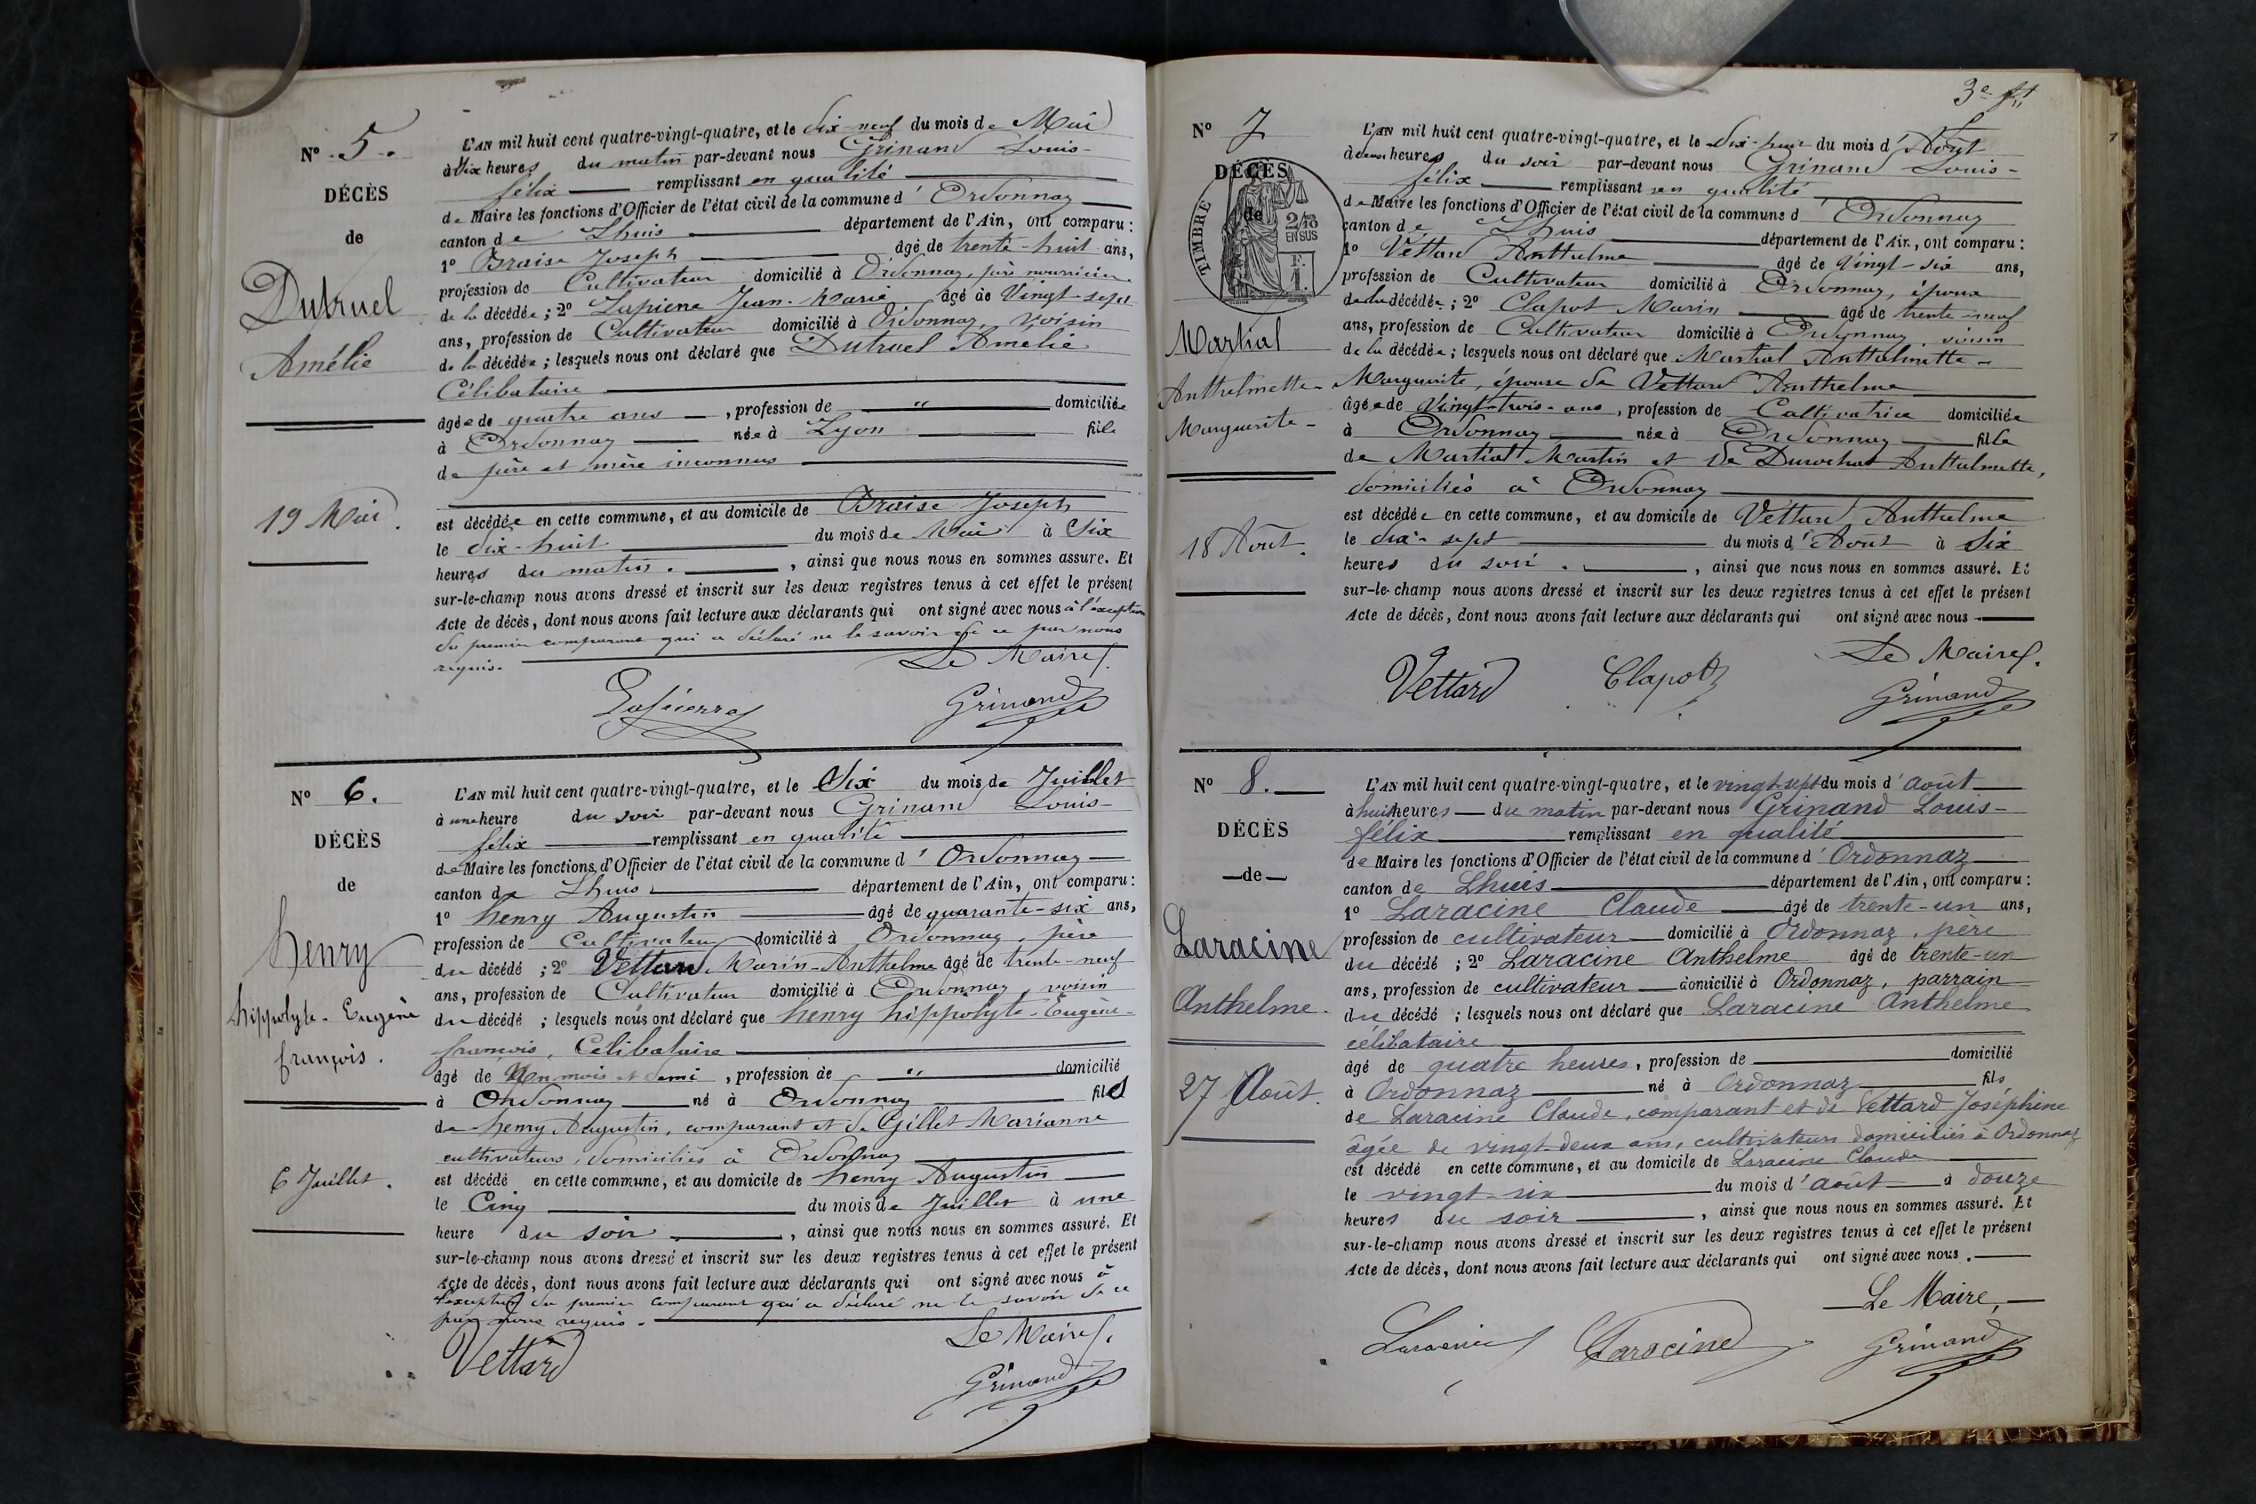 N° 5.
DÉCÈS
de
Dutruel
Amélie
19 Mai.
L'AN mil huit cent quatre-vingt-quatre, et le dix-neuf du mois de Mai
à dix heures du matin par-devant nous Grinand Louis-
félix remplissant en qualité
de Maire les fonctions d'Officier de l'état civil de la commune d'Ordonnaz
canton de Lhuis département de l'Ain, ont comparu :
1° Braise Joseph âgé de trente-huit ans,
profession de Cultivateur domicilié à Ordonnaz, père nourricier
de la décédée ; 2° Lapierre Jean-Marie âgé de Vingt-sept
ans, profession de Cultivateur domicilié à Ordonnaz, voisin
de la décédée ; lesquels nous ont déclaré que Dutruel Amélie
Célibataire
âgée de quatre ans , profession de " domiciliée
à Ordonnaz née à Lyon fille
de père et mère inconnus
est décédée en cette commune, et au domicile de Braise Joseph
le dix-huit du mois de Mai à Six
heures du matin. , ainsi que nous nous en sommes assuré. Et
sur-le-champ nous avons dressé et inscrit sur les deux registres tenus à cet effet le présent
Acte de décès, dont nous avons fait lecture aux déclarants qui ont signé avec nous à l'exception
du premier comparant qui a déclaré ne le savoir de ce par nous
requis.
Le Maire.
Lapierre Grinand
N° 6.
DÉCÈS
de
henry
hippolyte-Eugène
françois.
6 Juillet.
L'AN mil huit cent quatre-vingt-quatre, et le Six du mois de Juillet
à une heure du soir par-devant nous Grinand Louis-
félix remplissant en qualité
de Maire les fonctions d'Officier de l'état civil de la commune d'Ordonnaz
canton de Lhuis département de l'Ain, ont comparu :
1° henry Augustin âgé de quarante-six ans,
profession de Cultivateur domicilié à Ordonnaz, père
du décédé ; 2° Vettard Marin-Anthelme âgé de trente-neuf
ans, profession de Cultivateur domicilié à Ordonnaz, voisin
du décédé ; lesquels nous ont déclaré que henry hippolyte-Eugène-
françois, Célibataire
âgé de Un mois et demi , profession de " domicilié
à Ordonnaz né à Ordonnaz fils
de henry Augustin, comparant et de Gillet Marianne
cultivateurs, domiciliés à Ordonnaz
est décédé en cette commune, et au domicile de henry Augustin
le Cinq du mois de Juillet à une
heure du soir. , ainsi que nous nous en sommes assuré. Et
sur-le-champ nous avons dressé et inscrit sur les deux registres tenus à cet effet le présent
Acte de décès, dont nous avons fait lecture aux déclarants qui ont signé avec nous à
l'exception du premier comparant qui a déclaré ne le savoir de ce
par nous requis.
Le Maire.
Vettard Grinand
3e ft
N° 7
DÉCÈS
de
TIMBRE
2/10
EN SUS
F.
1.
Martial
Anthelmette-
Marguerite-
18 Août.
L'AN mil huit cent quatre-vingt-quatre, et le dix-huit du mois d'Août
à deux heures du soir par-devant nous Grinand Louis-
félix remplissant en qualité
de Maire les fonctions d'Officier de l'état civil de la commune d'Ordonnaz
canton de Lhuis département de l'Ain, ont comparu :
1° Vettard Anthelme âgé de Vingt-six ans,
profession de Cultivateur domicilié à Ordonnaz, époux
de la décédée ; 2° Clapot Marin âgé de trente-neuf
ans, profession de Cultivateur domicilié à Ordonnaz, voisin
de la décédée ; lesquels nous ont déclaré que Martial Anthelmette-
Marguerite, épouse de Vettard Anthelme
âgée de Vingt-trois-ans, profession de Cultivatrice domiciliée
à Ordonnaz née à Ordonnaz fille
de Martial Martin et de Durochat Anthelmette,
domiciliés à Ordonnaz
est décédée en cette commune, et au domicile de Vettard Anthelme
le dix-sept du mois d'Août à Six
heures du soir. , ainsi que nous nous en sommes assuré. Et
sur-le-champ nous avons dressé et inscrit sur les deux registres tenus à cet effet le présent
Acte de décès, dont nous avons fait lecture aux déclarants qui ont signé avec nous
Le Maire.
Vettard Clapot Grinand
N° 8.
DÉCÈS
de
Laracine
Anthelme.
27 Août.
L'AN mil huit cent quatre-vingt-quatre, et le vingt-sept du mois d'août
à huit heures du matin par-devant nous Grinand Louis-
félix remplissant en qualité
de Maire les fonctions d'Officier de l'état civil de la commune d'Ordonnaz
canton de Lhuis département de l'Ain, ont comparu :
1° Laracine Claude âgé de trente-un ans,
profession de cultivateur domicilié à Ordonnaz, père
du décédé ; 2° Laracine Anthelme âgé de trente-un
ans, profession de cultivateur domicilié à Ordonnaz, parrain
du décédé ; lesquels nous ont déclaré que Laracine Anthelme
célibataire
âgé de quatre heures, profession de domicilié
à Ordonnaz né à Ordonnaz fils
de Laracine Claude, comparant et de Vettard Joséphine
âgée de vingt-deux ans, cultivateurs domiciliés à Ordonnaz
est décédé en cette commune, et au domicile de Laracine Claude
le vingt-six du mois d'août à douze
heures du soir , ainsi que nous nous en sommes assuré. Et
sur-le-champ nous avons dressé et inscrit sur les deux registres tenus à cet effet le présent
Acte de décès, dont nous avons fait lecture aux déclarants qui ont signé avec nous.
Le Maire,
Laracine Laracine Grinand